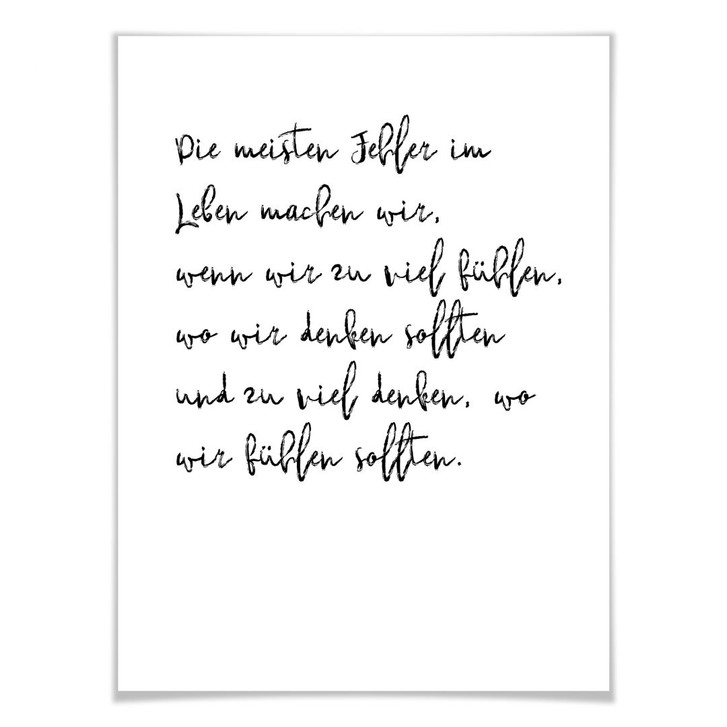 Die meisten Fehler im
Leben machen wir,
wenn wir zu viel fühlen,
wo wir denken sollten
und zu viel denken, wo
wir fühlen sollten.